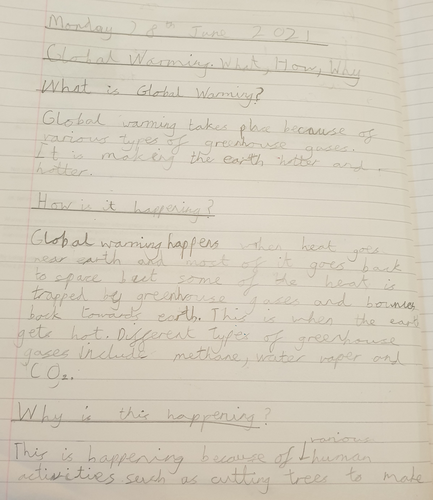 Monday 28th June 2021
Global Warming. What, How, Why
What is Global Warming?
Global warming takes place because of
various types of greenhouse gases.
It is making the earth hotter and
hotter.
How is it happening?
Global warming happens when heat goes
near earth and most of it goes back
to space but some of the heat is
trapped by greenhouse gases and bounces
back towards earth. This is when the earth
gets hot. Different types of greenhouse
gases include methane, water vaper and
CO2.
Why is this happening?
various
This is happening because of human
activities such as cutting trees to make